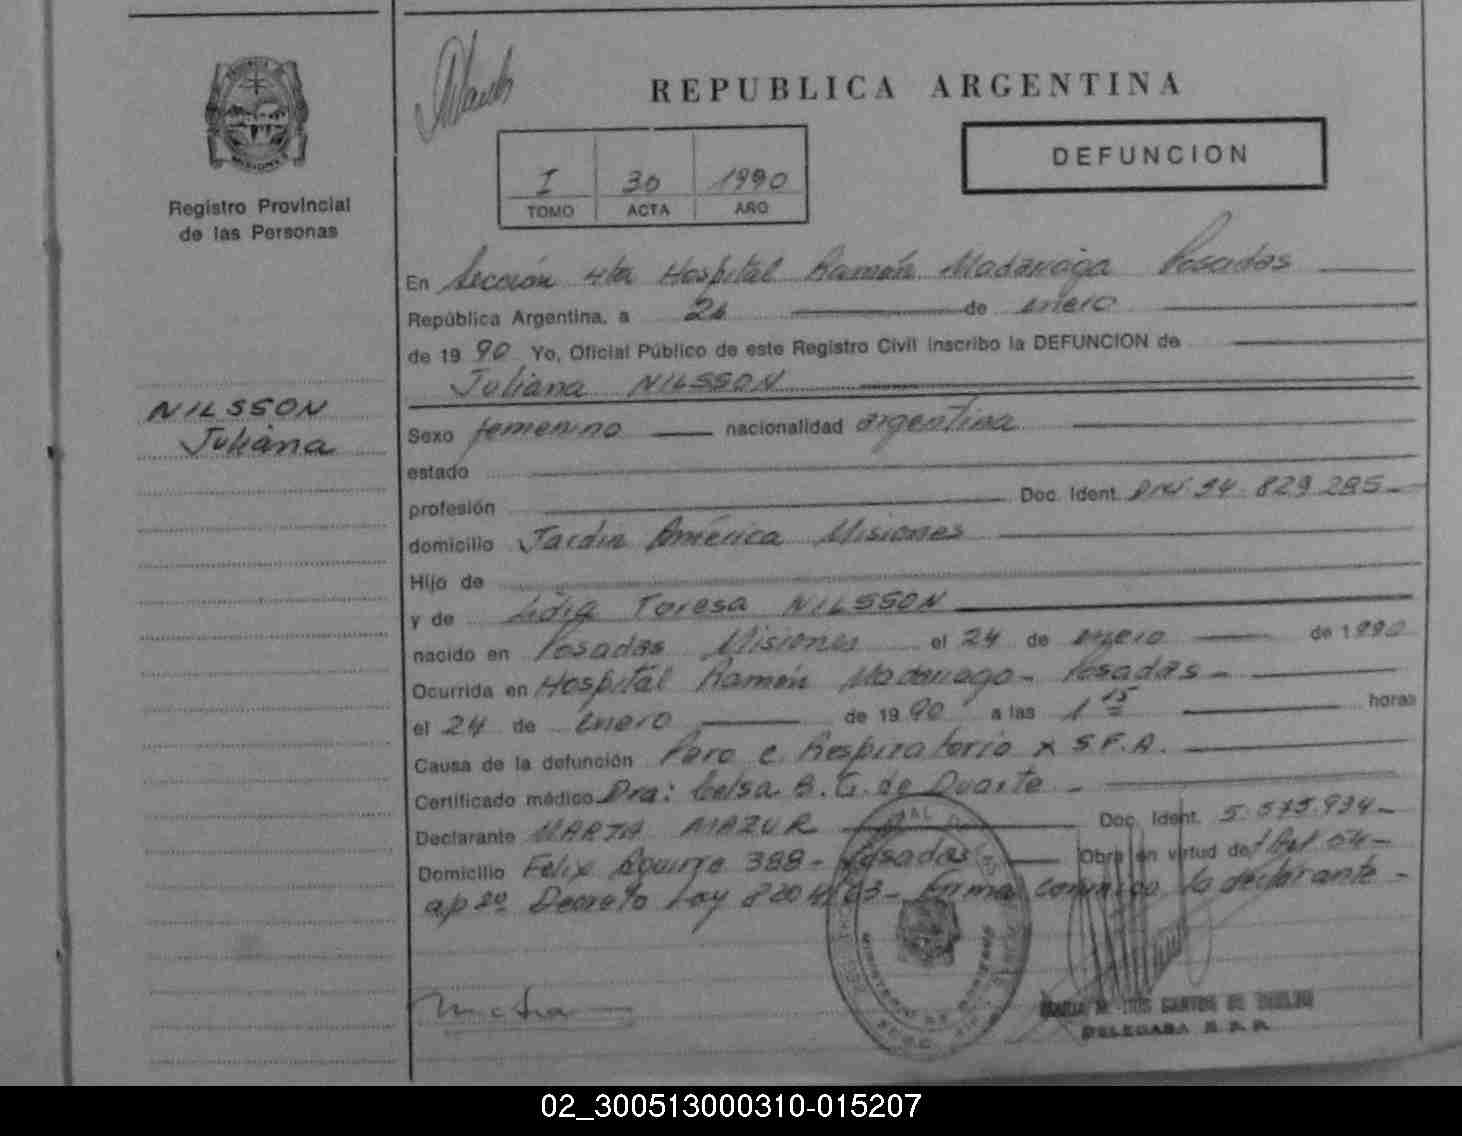 REPUBLICA ARGENTINA
DEFUNCION
I 30 1990
TOMO ACTA AÑO
MISIONES
Registro Provincial
de las Personas
NILSSON
Juliana
En Sección 4ta Hospital Ramón Madariaga Posadas
República Argentina, a 24 de enero
de 1990 Yo, Oficial Público de este Registro Civil inscribo la DEFUNCION de
Juliana NILSSON
Sexo femenino nacionalidad argentina
estado
profesión Doc. Ident. DNI 34.829.285
domicilio Jardín América Misiones
Hijo de
y de Lidia Teresa NILSSON
nacido en Posadas Misiones el 24 de enero de 1990
Ocurrida en Hospital Ramón Madariaga - Posadas -
el 24 de enero de 1990 a las 1 15 horas
Causa de la defunción Paro c. Respiratorio x S.F.A.
Certificado médico Dra: Celsa B. G. de Duarte -
Declarante MARTA MAZUR Doc. Ident. 5.575.934 -
Domicilio Felix Aguirre 388 - Posadas Obra en virtud de
ap 2º Decreto Ley 8204/63 - Firma conmigo la declarante -
DELEGADA R.P.P.
02_300513000310-015207